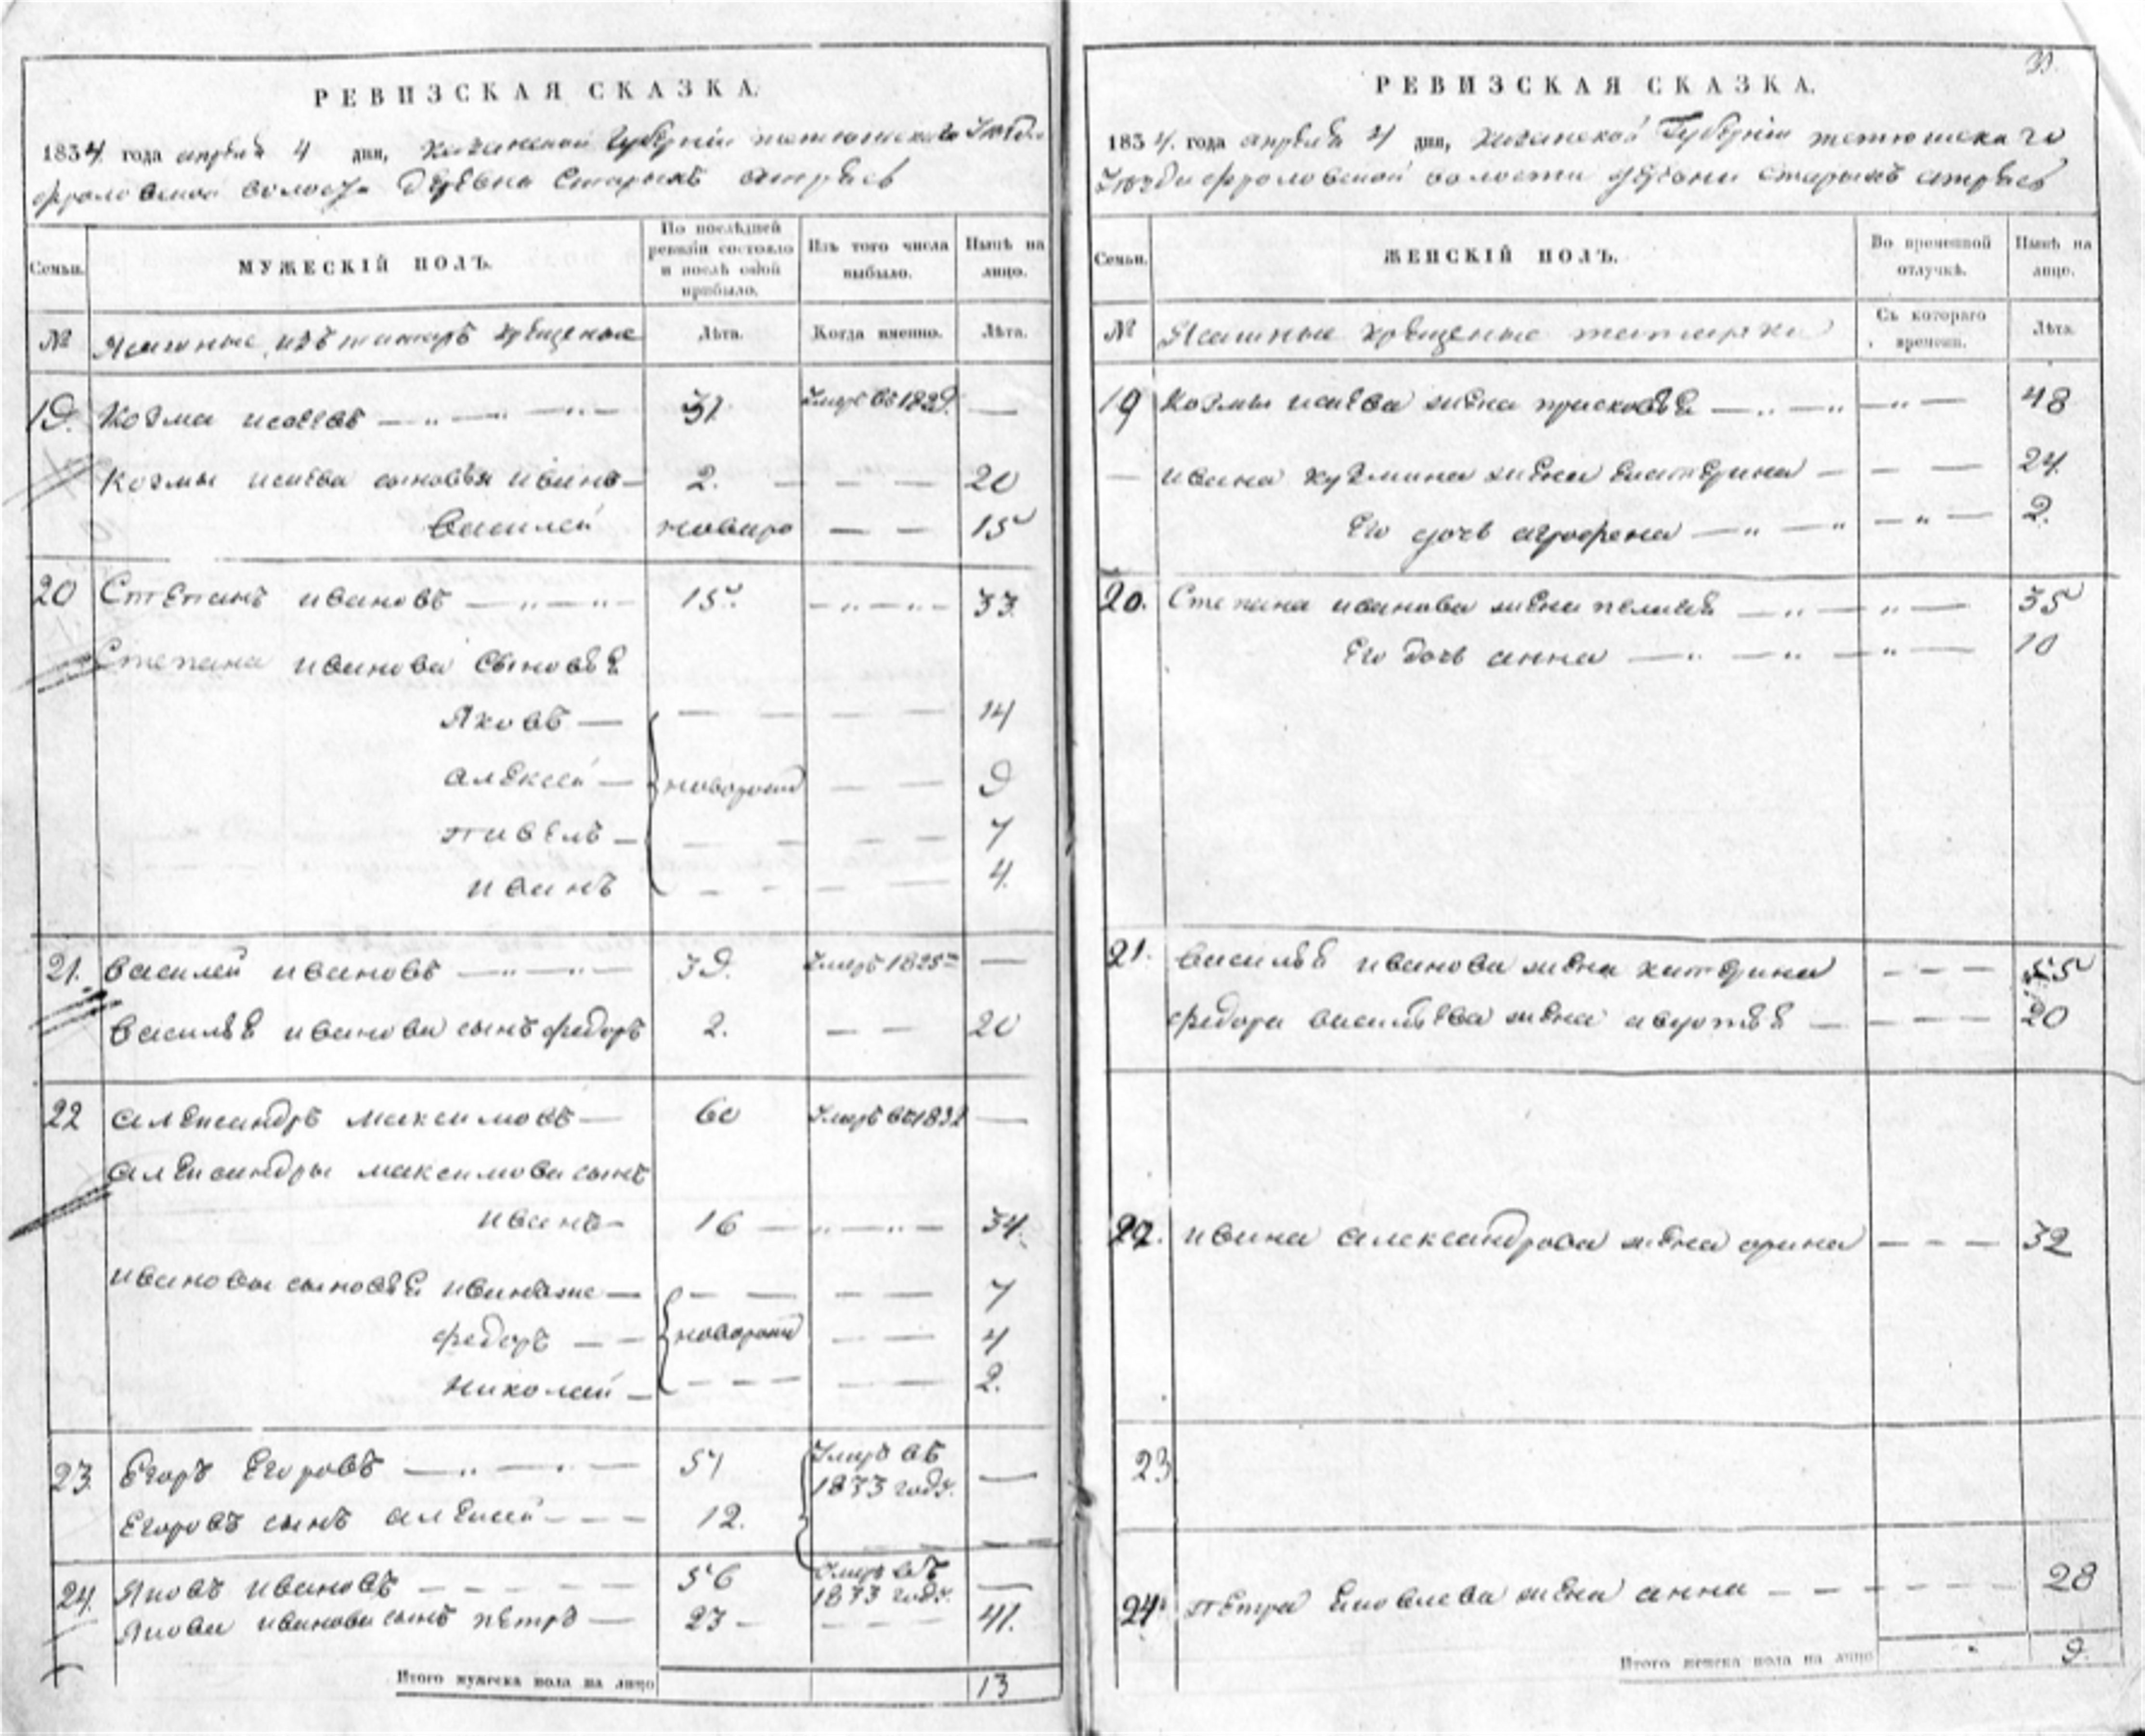 РЕВИЗСКАЯ СКАЗКА.
1834 года апреля 4 дня, Казанской Губерніи тетюшскаго Уезда
фроловской волости деревни Старыхъ атряси
Семьи.
МУЖЕСКІЙ ПОЛЪ.
По послѣдней ревизіи состояло и послѣ оной прибыло.
Изъ того числа выбыло.
Нынѣ на лицо.
№
Ясашные изъ татаръ крещеные
Лѣта.
Когда именно.
Лѣта.
19. Козма исаевъ 31 Умеръ въ 1829. —
Козмы исаева сыновья иванъ 2. 20
Василей новоро 15
20 Степанъ ивановъ 15. 33
Степана иванова сыновьѣ
Яковъ 14
алексей новорожд 9
павелъ 7
иванъ 4.
21. Василей ивановъ 39. Умеръ 1825 —
Васильѣ иванова сынъ федоръ 2. 20
22 александръ максимовъ 60 Умеръ въ 1832 —
александры максимова сынъ
иванъ 16 34.
ивановы сыновьѣ иванъ же 7
федоръ новорожд 4
николай 2.
23. Егоръ Егоровъ 57 Умеръ въ 1833 годе. —
Егоровъ сынъ алексей 12.
24. Яковъ ивановъ 56 Умеръ въ 1833 годе. —
Якова иванова сынъ петръ 23 41.
Итого мужеска пола на лицо 13
33.
РЕВИЗСКАЯ СКАЗКА.
1834. года апреля 4 дня, Казанской Губерніи тетюшскаго
Уезда фроловской волости деревни Старыхъ атряси
Семьи.
ЖЕНСКІЙ ПОЛЪ.
Во временной отлучкѣ.
Нынѣ на лицо.
№
Ясашные крещеные татарки
Съ котораго времени.
Лѣта.
19 Козмы исаева жена прасковьѣ 48
ивана кузмина жена Екатерина 24.
Его дочь аграфена 2.
20. Степана иванова жена пелагея 35
Его дочь анна 10
21. Васильѣ иванова жена катерина 55
федора васильева жена авдотьѣ 20
22. ивана александрова жена орина 32
23
24. петра Яковлева жена анна 28
Итого женска пола на лицо 9.